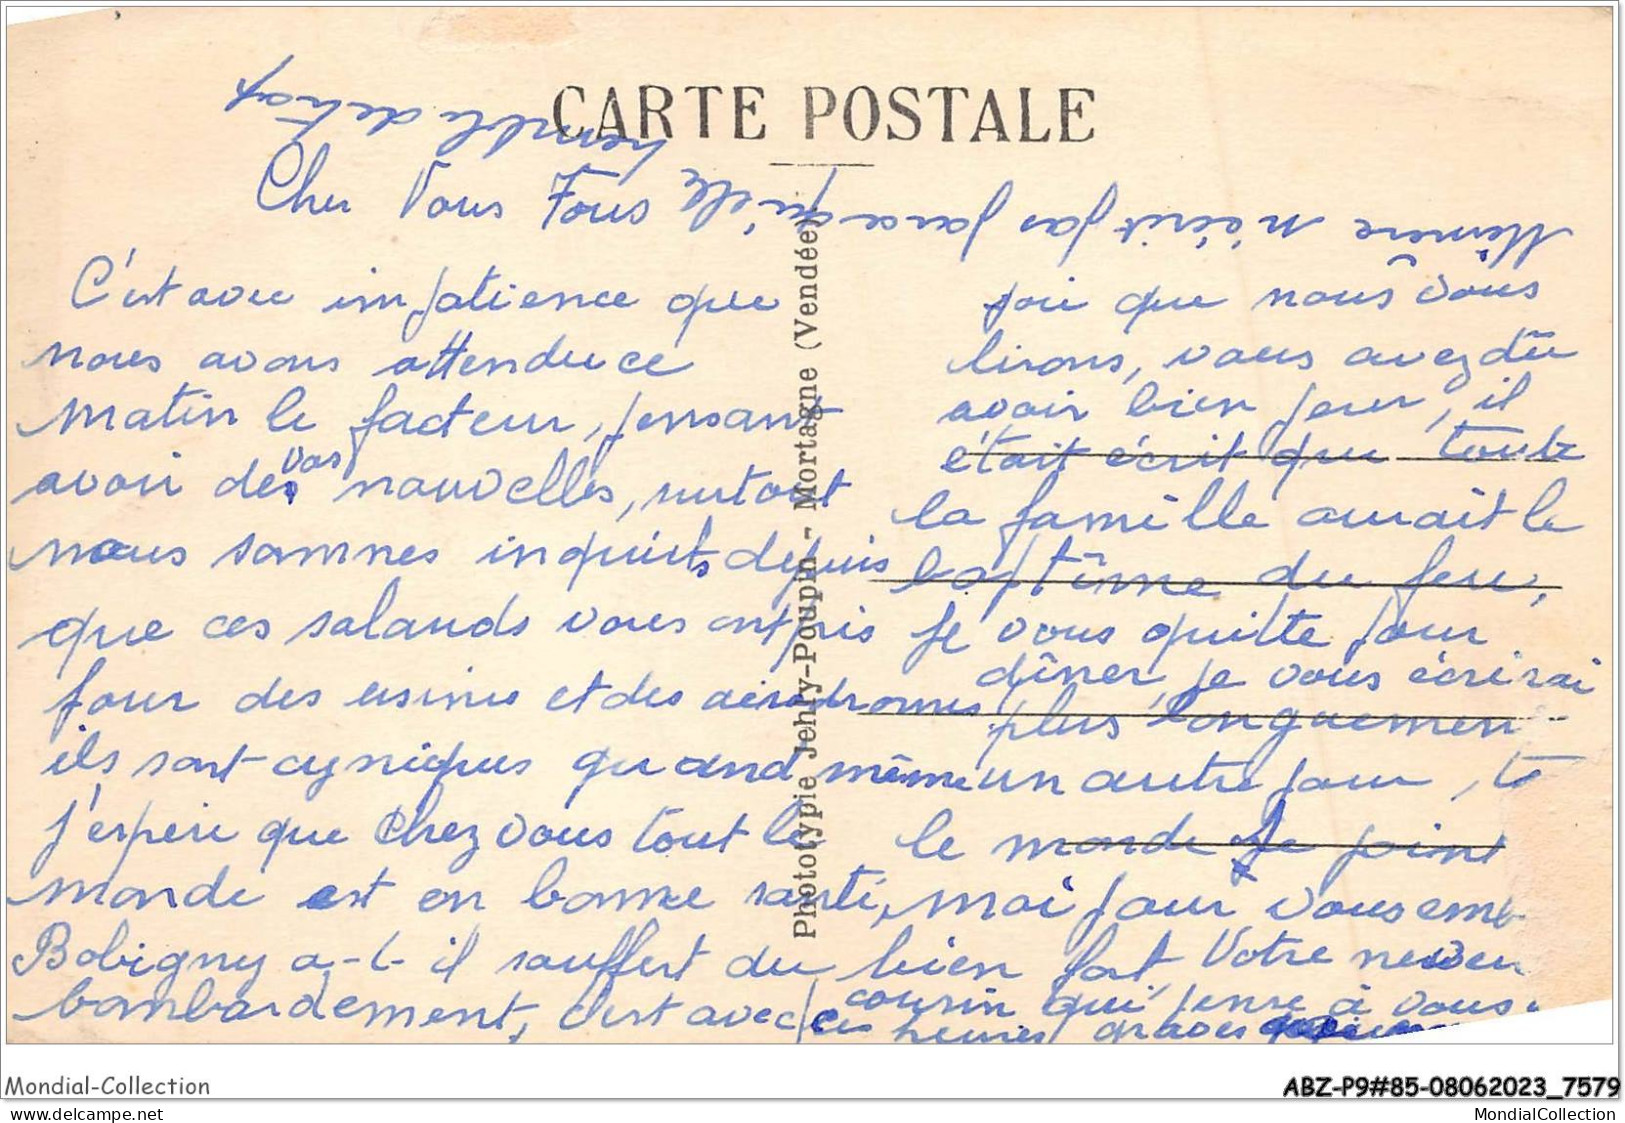 CARTE POSTALE
Mémère n'écrit pas parce qu'elle
tremble de trop
Cher Vous Tous
C'est avec impatience que
nous avons attendu ce
matin le facteur, pensant
avoir de vos nouvelles, surtout
nous sommes inquiets depuis
que ces salauds vous ont pris
pour des usines et des aérodromes
ils sont cyniques quand même
j'espère que chez vous tout le
monde est en bonne santé,
Bobigny a-t-il souffert du
bombardement, c'est avec
joie que nous vous
lirons, vous avez dû
avoir bien peur, il
était écrit que toute
la famille aurait le
baptême du feu,
je vous quitte pour
dîner, je vous écrirai
plus longuement
un autre jour, to
le monde se joint
moi pour vous emb
bien fort, Votre neveu
cousin qui pense à vous
ces heures graves
Phototypie Jehly-Poupin - Mortagne (Vendée)
Mondial-Collection
ABZ-P9#85-08062023_7579
Ultra-delcampe.net
MondialCollection